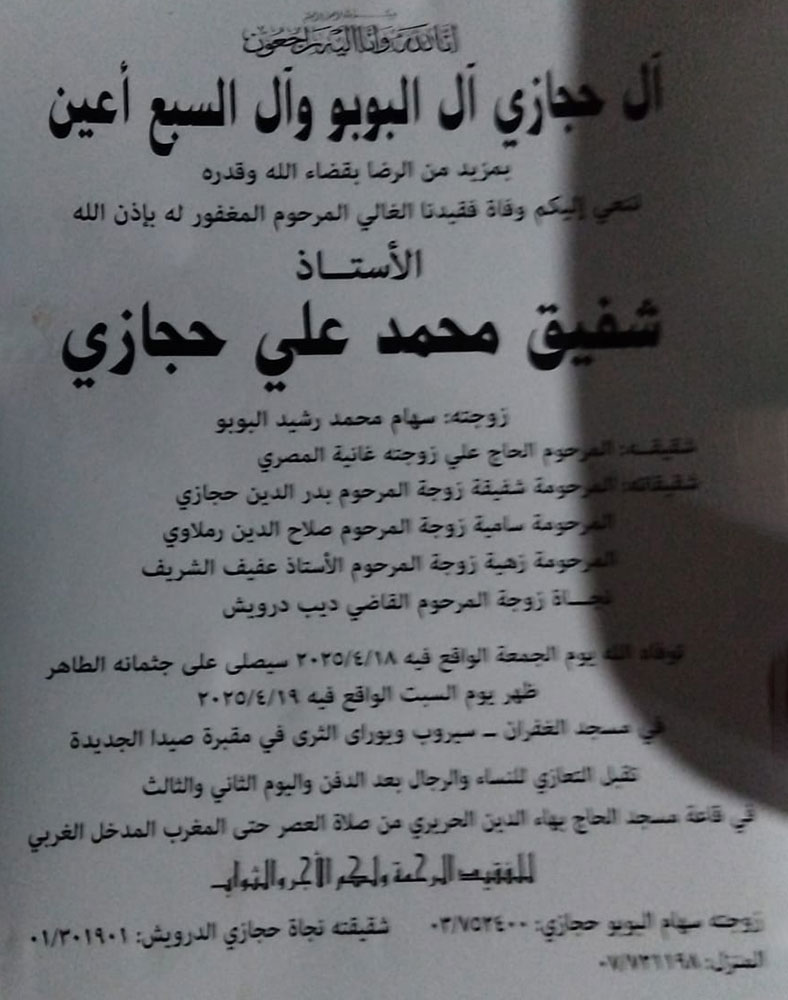 إنا لله وإنا إليه راجعون
آل حجازي آل البوبو وآل السبع أعين
بمزيد من الرضا بقضاء الله وقدره
ننعي إليكم وفاة فقيدنا الغالي المرحوم المغفور له بإذن الله
الأستــاذ
شفيق محمد علي حجازي
زوجته: سهام محمد رشيد البوبو
شقيقـه: المرحوم الحاج علي زوجته غانية المصري
شقيقاته: المرحومة شفيقة زوجة المرحوم بدر الدين حجازي
المرحومة سامية زوجة المرحوم صلاح الدين رملاوي
المرحومة زهية زوجة المرحوم الأستاذ عفيف الشريف
نجــاة زوجة المرحوم القاضي ديب درويش
توفاه الله يوم الجمعة الواقع فيه ٢٠٢٥/٤/١٨ سيصلى على جثمانه الطاهر
ظهر يوم السبت الواقع فيه ٢٠٢٥/٤/١٩
في مسجد الغفران ــ سيروب ويوراى الثرى في مقبرة صيدا الجديدة
تقبل التعازي للنساء والرجال بعد الدفن واليوم الثاني والثالث
في قاعة مسجد الحاج بهاء الدين الحريري من صلاة العصر حتى المغرب المدخل الغربي
للفقيد الرحمة ولكم الأجر والثواب
زوجته سهام البوبو حجازي: ٠٣/٧٥٢٤٠٠ شقيقته نجاة حجازي الدرويش: ٠١/٣٠١٩٠١
المنزل: ٠٧/٧٣١١٩٨